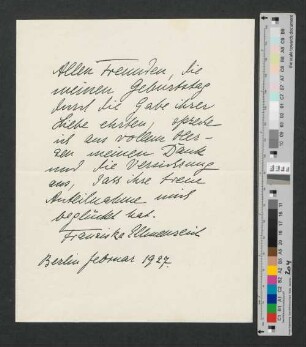 Allen Freunden, die
meinen Geburtstag
durch die Gabe ihrer
Liebe ehrten, spreche
ich aus vollem Her-
zen meinen Dank
und die Versicherung
aus, dass ihre treue
Anteilnahme mich
beglückt hat.
Franziska Ellmenreich
Berlin Februar 1927.